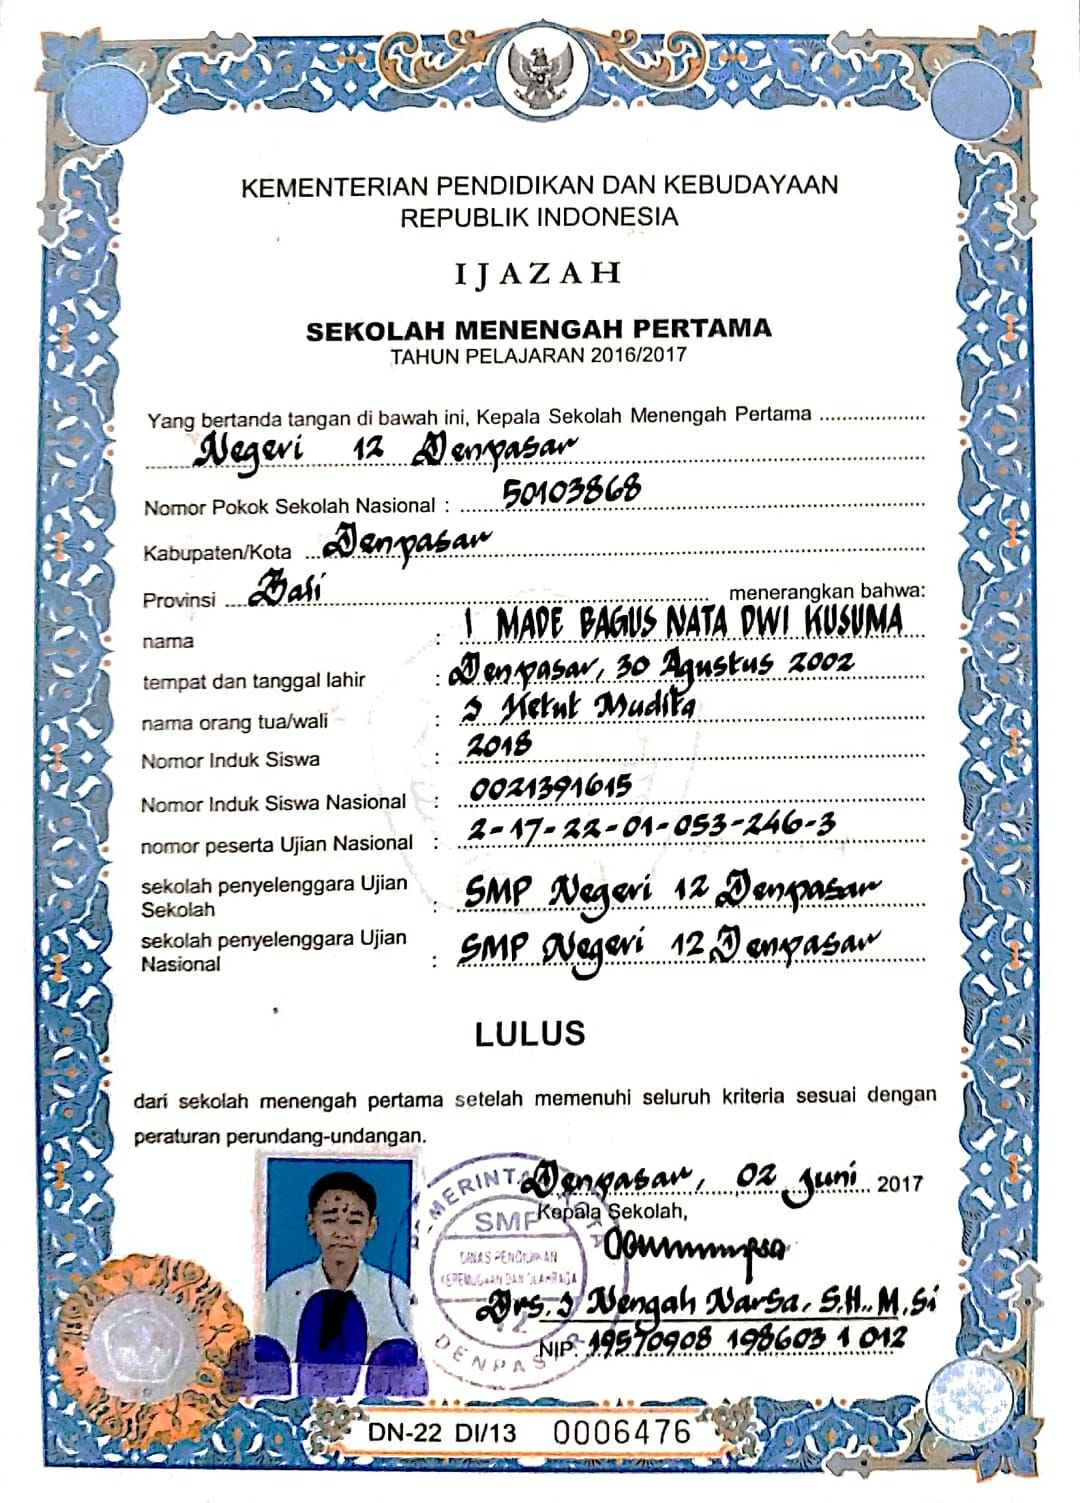 KEMENTERIAN PENDIDIKAN DAN KEBUDAYAAN
REPUBLIK INDONESIA
IJAZAH
SEKOLAH MENENGAH PERTAMA
TAHUN PELAJARAN 2016/2017
Yang bertanda tangan di bawah ini, Kepala Sekolah Menengah Pertama
Negeri 12 Denpasar
Nomor Pokok Sekolah Nasional : 50103868
Kabupaten/Kota Denpasar
Provinsi Bali menerangkan bahwa:
nama : I MADE BAGUS NATA DWI KUSUMA
tempat dan tanggal lahir : Denpasar, 30 Agustus 2002
nama orang tua/wali : I Ketut Mudita
Nomor Induk Siswa : 2018
Nomor Induk Siswa Nasional : 0021391615
nomor peserta Ujian Nasional : 2-17-22-01-053-246-3
sekolah penyelenggara Ujian
Sekolah : SMP Negeri 12 Denpasar
sekolah penyelenggara Ujian
Nasional : SMP Negeri 12 Denpasar
LULUS
dari sekolah menengah pertama setelah memenuhi seluruh kriteria sesuai dengan
peraturan perundang-undangan.
Denpasar, 02 Juni 2017
Kepala Sekolah,
SMP
DINAS PENDIDIKAN
KEPEMUDAAN DAN OLAHRAGA
DENPASAR
Drs. I Nengah Narsa, S.H., M.Si
NIP. 19570908 198603 1 012
DN-22 DI/13 0006476